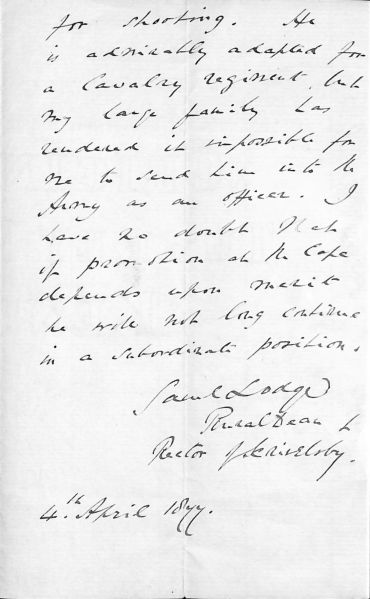 for shooting. He
is admirably adapted for
a Cavalry regiment, but
my large family has
rendered it impossible for
me to send him into the
Army as an officer. I
have no doubt that
if promotion at the Cape
depends upon merit
he will not long continue
in a subordinate position.
Saml Lodge
Rural Dean &
Rector of Scrivelsby.
4th April 1877.